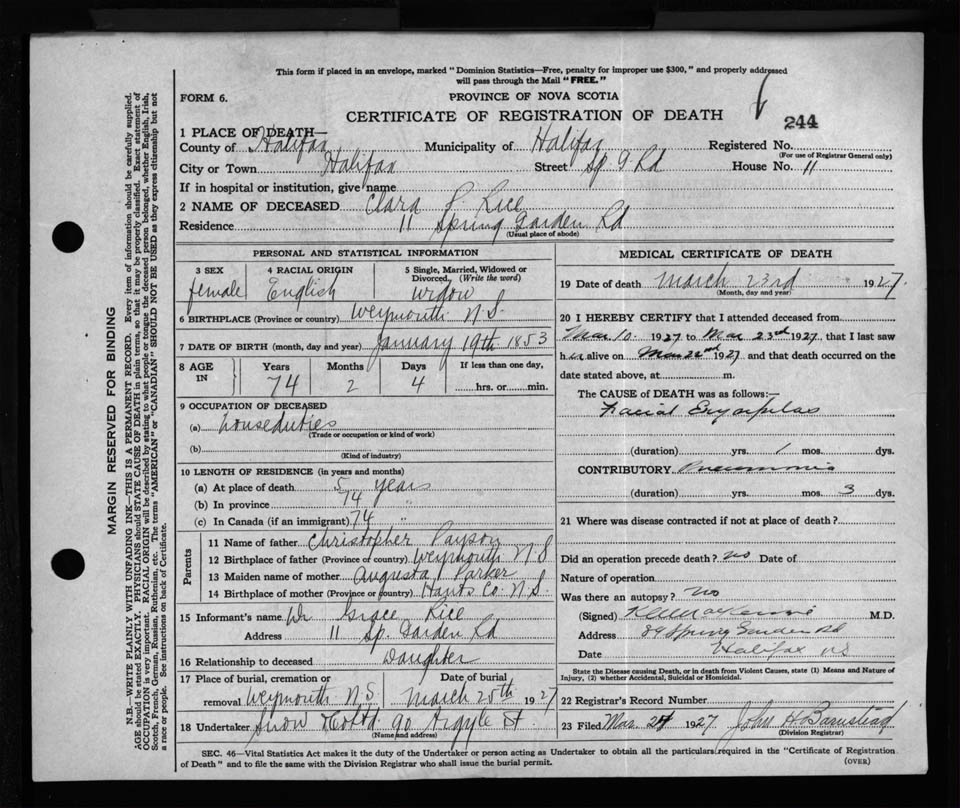 This form if placed in an envelope, marked "Dominion Statistics—Free, penalty for improper use $300," and properly addressed
will pass through the Mail "FREE."
FORM 6.
PROVINCE OF NOVA SCOTIA
CERTIFICATE OF REGISTRATION OF DEATH
244
1 PLACE OF DEATH—
County of Halifax Municipality of Halifax Registered No.
(For use of Registrar General only)
City or Town Halifax Street Sp G Rd House No. 11
If in hospital or institution, give name
2 NAME OF DECEASED Clara P. Rice
Residence 11 Spring Garden Rd
(Usual place of abode)
PERSONAL AND STATISTICAL INFORMATION
3 SEX 4 RACIAL ORIGIN 5 Single, Married, Widowed or
Divorced. (Write the word)
female English Widow
6 BIRTHPLACE (Province or country) Weymouth N.S.
7 DATE OF BIRTH (month, day and year) January 19th 1853
8 AGE Years Months Days If less than one day,
IN 74 2 4 hrs. or min.
9 OCCUPATION OF DECEASED
(a) Houseduties
(Trade or occupation or kind of work)
(b)
(Kind of industry)
10 LENGTH OF RESIDENCE (in years and months)
(a) At place of death 5 years
(b) In province 74 "
(c) In Canada (if an immigrant) 74 "
Parents
11 Name of father Christopher Payson
12 Birthplace of father (Province or country) Weymouth N S
13 Maiden name of mother Augusta Parker
14 Birthplace of mother (Province or country) Hants Co. N.S.
15 Informant's name Dr Grace Rice
Address 11 Sp. Garden Rd
16 Relationship to deceased Daughter
17 Place of burial, cremation or Date of burial
removal Weymouth N.S. March 25th 1927
18 Undertaker Snow & Co Ltd 90 Argyle St
(Name and address)
MEDICAL CERTIFICATE OF DEATH
19 Date of death March 23rd 1927.
(Month, day and year)
20 I HEREBY CERTIFY that I attended deceased from
Mar 10 1927 to Mar 23rd 1927, that I last saw
her alive on Mar 22nd 1927 and that death occurred on the
date stated above, at m.
The CAUSE OF DEATH was as follows:—
Facial Erysipelas
(duration) yrs. 1 mos. dys.
CONTRIBUTORY Pneumonia
(duration) yrs. mos. 3 dys.
21 Where was disease contracted if not at place of death?
Did an operation precede death? no Date of
Nature of operation
Was there an autopsy? no
(Signed) M.D.
Address 89 Spring Garden Rd
Date Halifax NS
State the Disease causing Death, or in death from Violent Causes, state (1) Means and Nature of
Injury, (2) whether Accidental, Suicidal or Homicidal.
22 Registrar's Record Number
23 Filed Mar 1927 John H Barnstead
(Division Registrar)
SEC. 46—Vital Statistics Act makes it the duty of the Undertaker or person acting as Undertaker to obtain all the particulars required in the "Certificate of Registration
of Death" and to file the same with the Division Registrar who shall issue the burial permit.
(OVER)
MARGIN RESERVED FOR BINDING
N.B.—WRITE PLAINLY WITH UNFADING INK—THIS IS A PERMANENT RECORD. Every item of information should be carefully supplied.
AGE should be stated EXACTLY. PHYSICIANS should STATE CAUSE OF DEATH in plain terms, so that it may be properly classified. Exact statement of
OCCUPATION is very important. RACIAL ORIGIN will be described by stating to what people or tongue the deceased person belonged, whether English, Irish,
Scotch, French, German, Russian, Ruthenian, etc. The terms "AMERICAN" or "CANADIAN" SHOULD NOT BE USED as they express citizenship but not
a race or people. See instructions on back of Certificate.